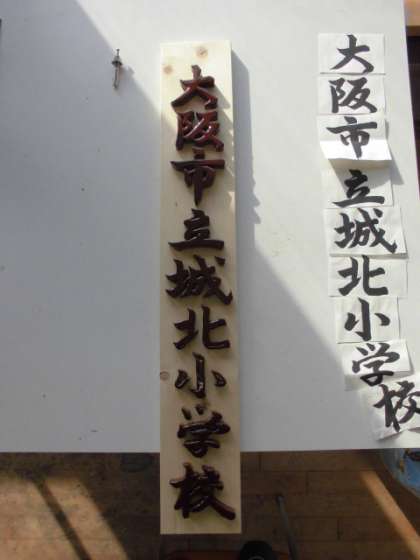 大阪市立城北小学校
大阪市立城北小学校